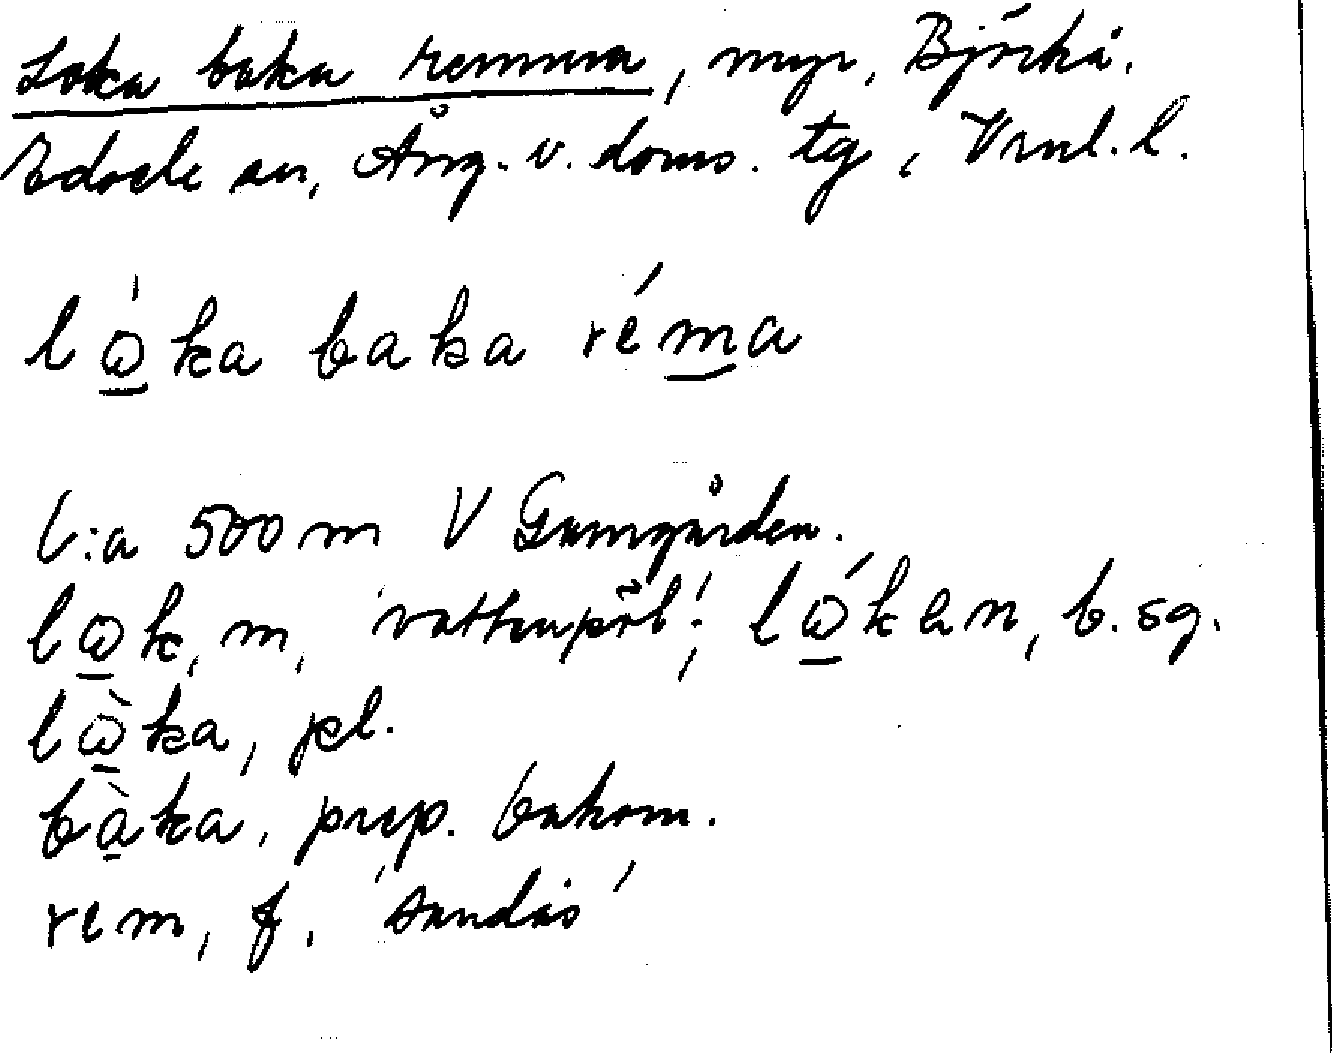 Loka baka remma, myr, Björkå.
Edsele sn, Ång. v. doms. tg, Vrnl. l.
lώ̲ka baka rém̲a
C:a 500 m V Gamgården.
lω̲k, m, 'vattenpöl'; lώ̲kan, b. sg.
lὼ̲ka, pl.
bà̲ka, prep. bakom.
rem, f. 'sandås'